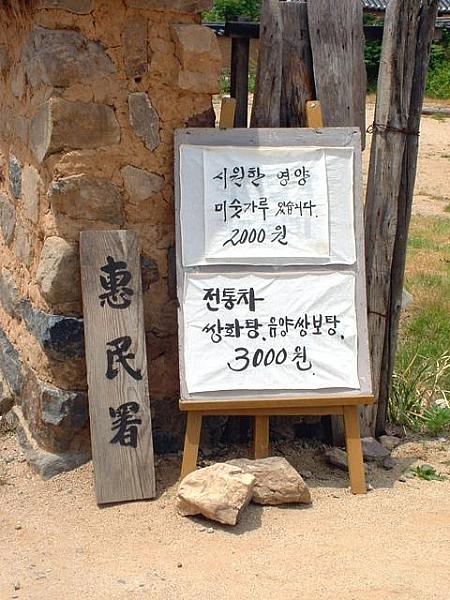 惠民署
시원한 영양
미숫가루 있습니다.
2000원
전통차
쌍화탕, 음양쌍보탕,
3000원.